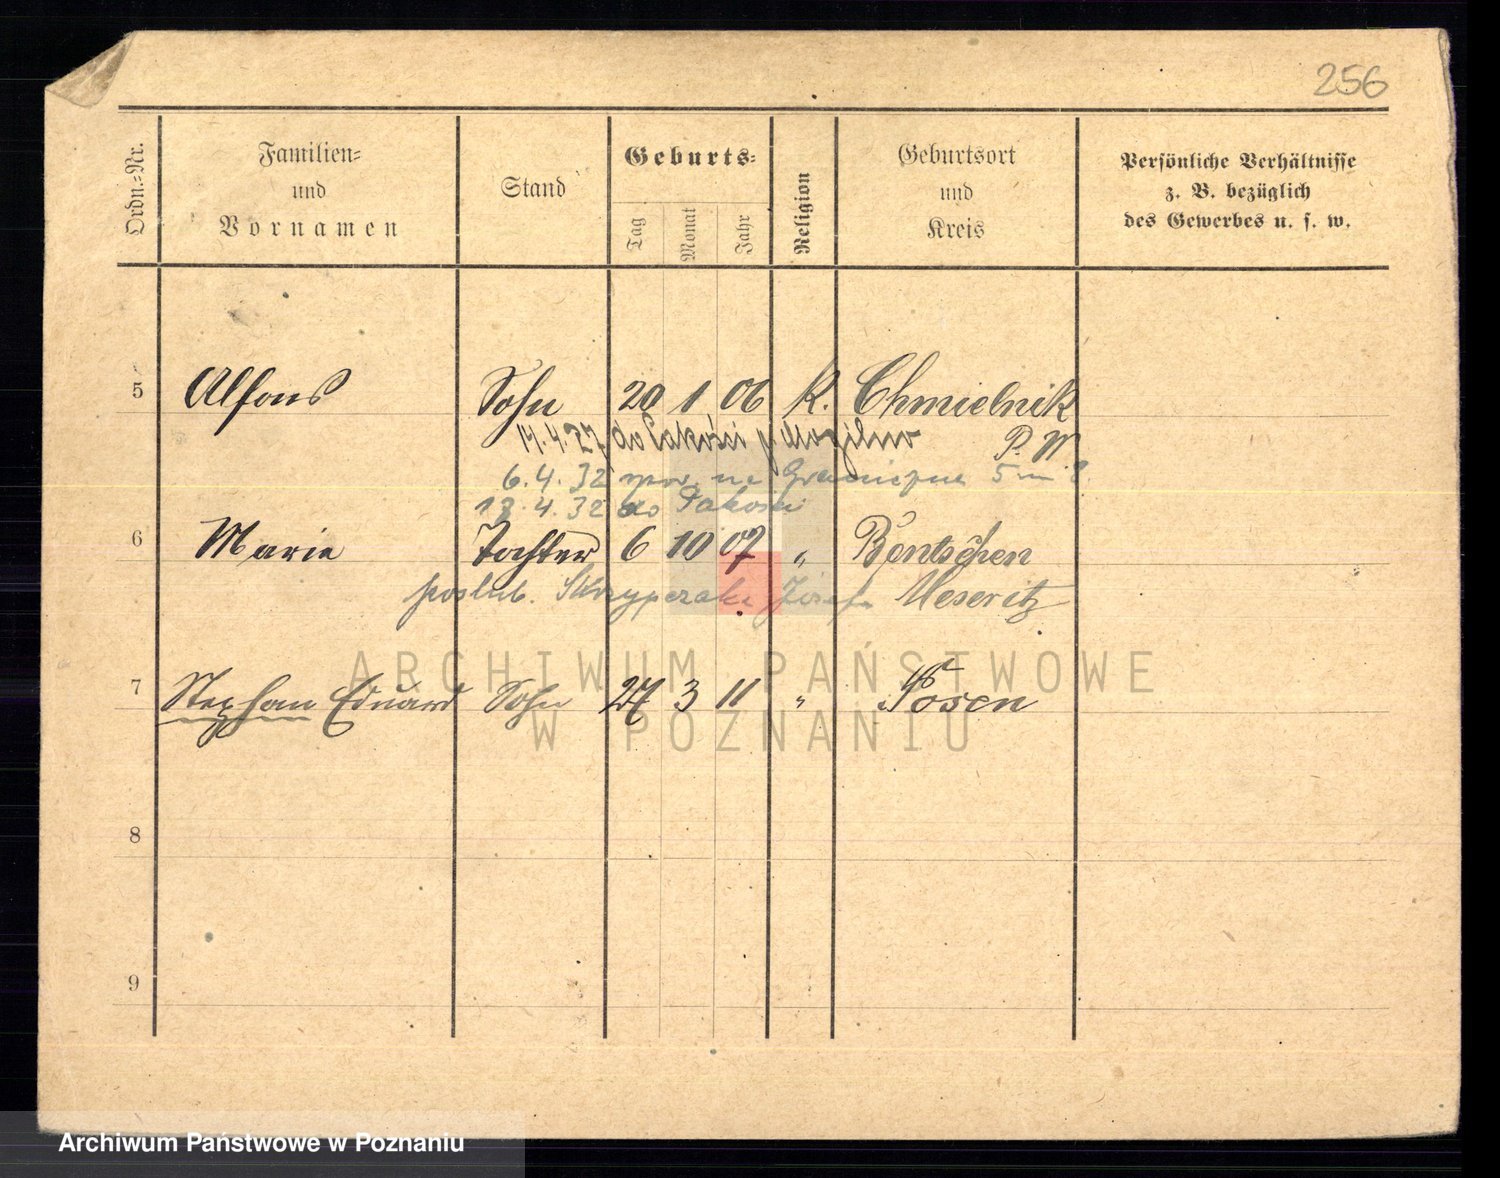 256
Ordn.-Nr.
Familien-
und
Vornamen
Stand
Geburts-
Tag
Monat
Jahr
Religion
Geburtsort
und
Kreis
Persönliche Verhältnisse
z. B. bezüglich
des Gewerbes u. s. w.
5 Alfons Sohn 20 1 06 K. Chmielnik
4.27 do Pakości p Mogilno P. W.
6.4.32 na Graniczna 5 m
13.4.32 do Pakości
6 Marie Tochter 6 10 07 „ Bentschen
poślub. Skrzypczak Józef Meseritz
7 Stephan Eduard Sohn 27 3 11 „ Posen
8
9
ARCHIWUM PAŃSTWOWE
W POZNANIU
Archiwum Państwowe w Poznaniu